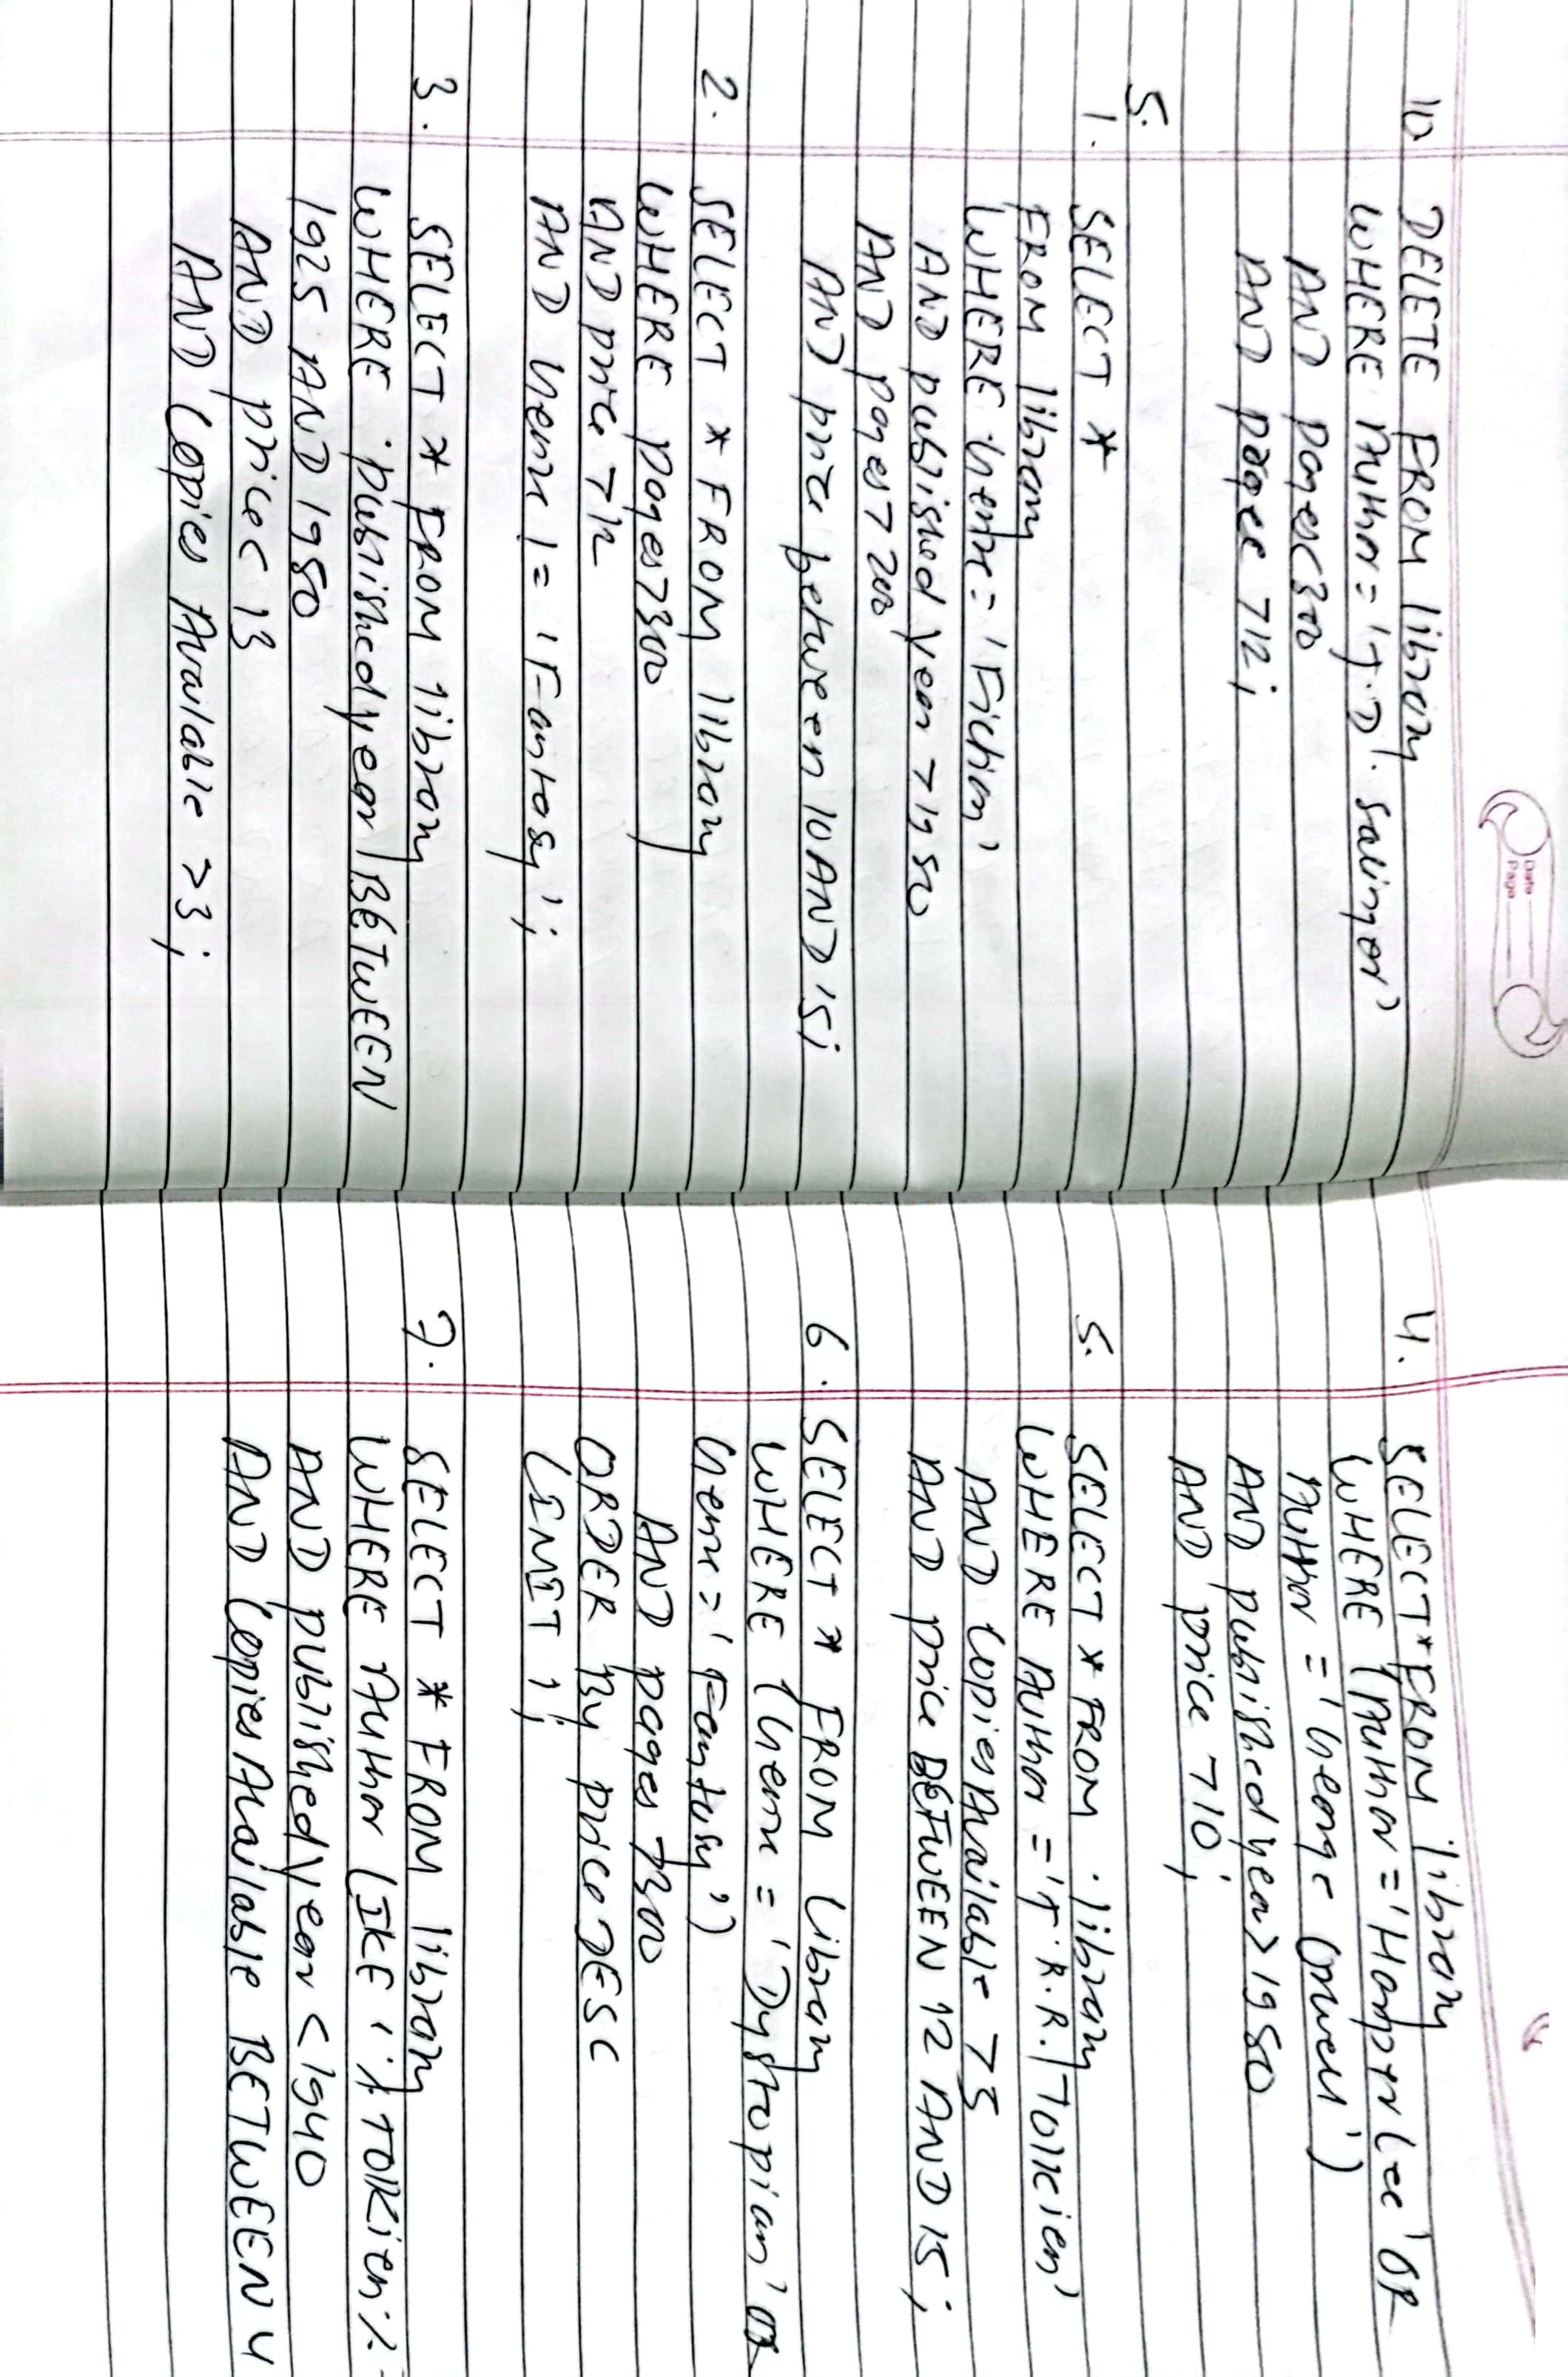 Date
Page
10. DELETE FROM library
WHERE Author = 'J.D. Salinger'
AND pages<300
AND pages >12;
5.
1. SELECT *
FROM library
WHERE Genre = 'Fiction'
AND published year >1950
AND pages> 200
AND price between 10 AND 15;
2. SELECT * FROM library
WHERE pages>300
AND price >12
AND Genre != 'Fantasy';
3. SELECT * FROM library
WHERE publishedyear BETWEEN
1925 AND 1950
AND price< 13
AND Copies Available >3;
4. SELECT * FROM library
WHERE (Author = 'Harper Lee' OR
Author = 'George Orwell')
AND publishedyear> 1950
AND price >10;
5. SELECT * FROM library
WHERE Author = 'J.R.R. Tolkien'
AND CopiesAvailable >5
AND price BETWEEN 12 AND 15;
6. SELECT * FROM library
WHERE (Genre = 'Dystopian' OR
Genre = 'Fantasy')
AND pages >300
ORDER By price DESC
LIMIT 1;
7. SELECT * FROM library
WHERE Author LIKE '%Tolkien%
AND publishedyear <1940
AND CopiesAvailable BETWEEN 4